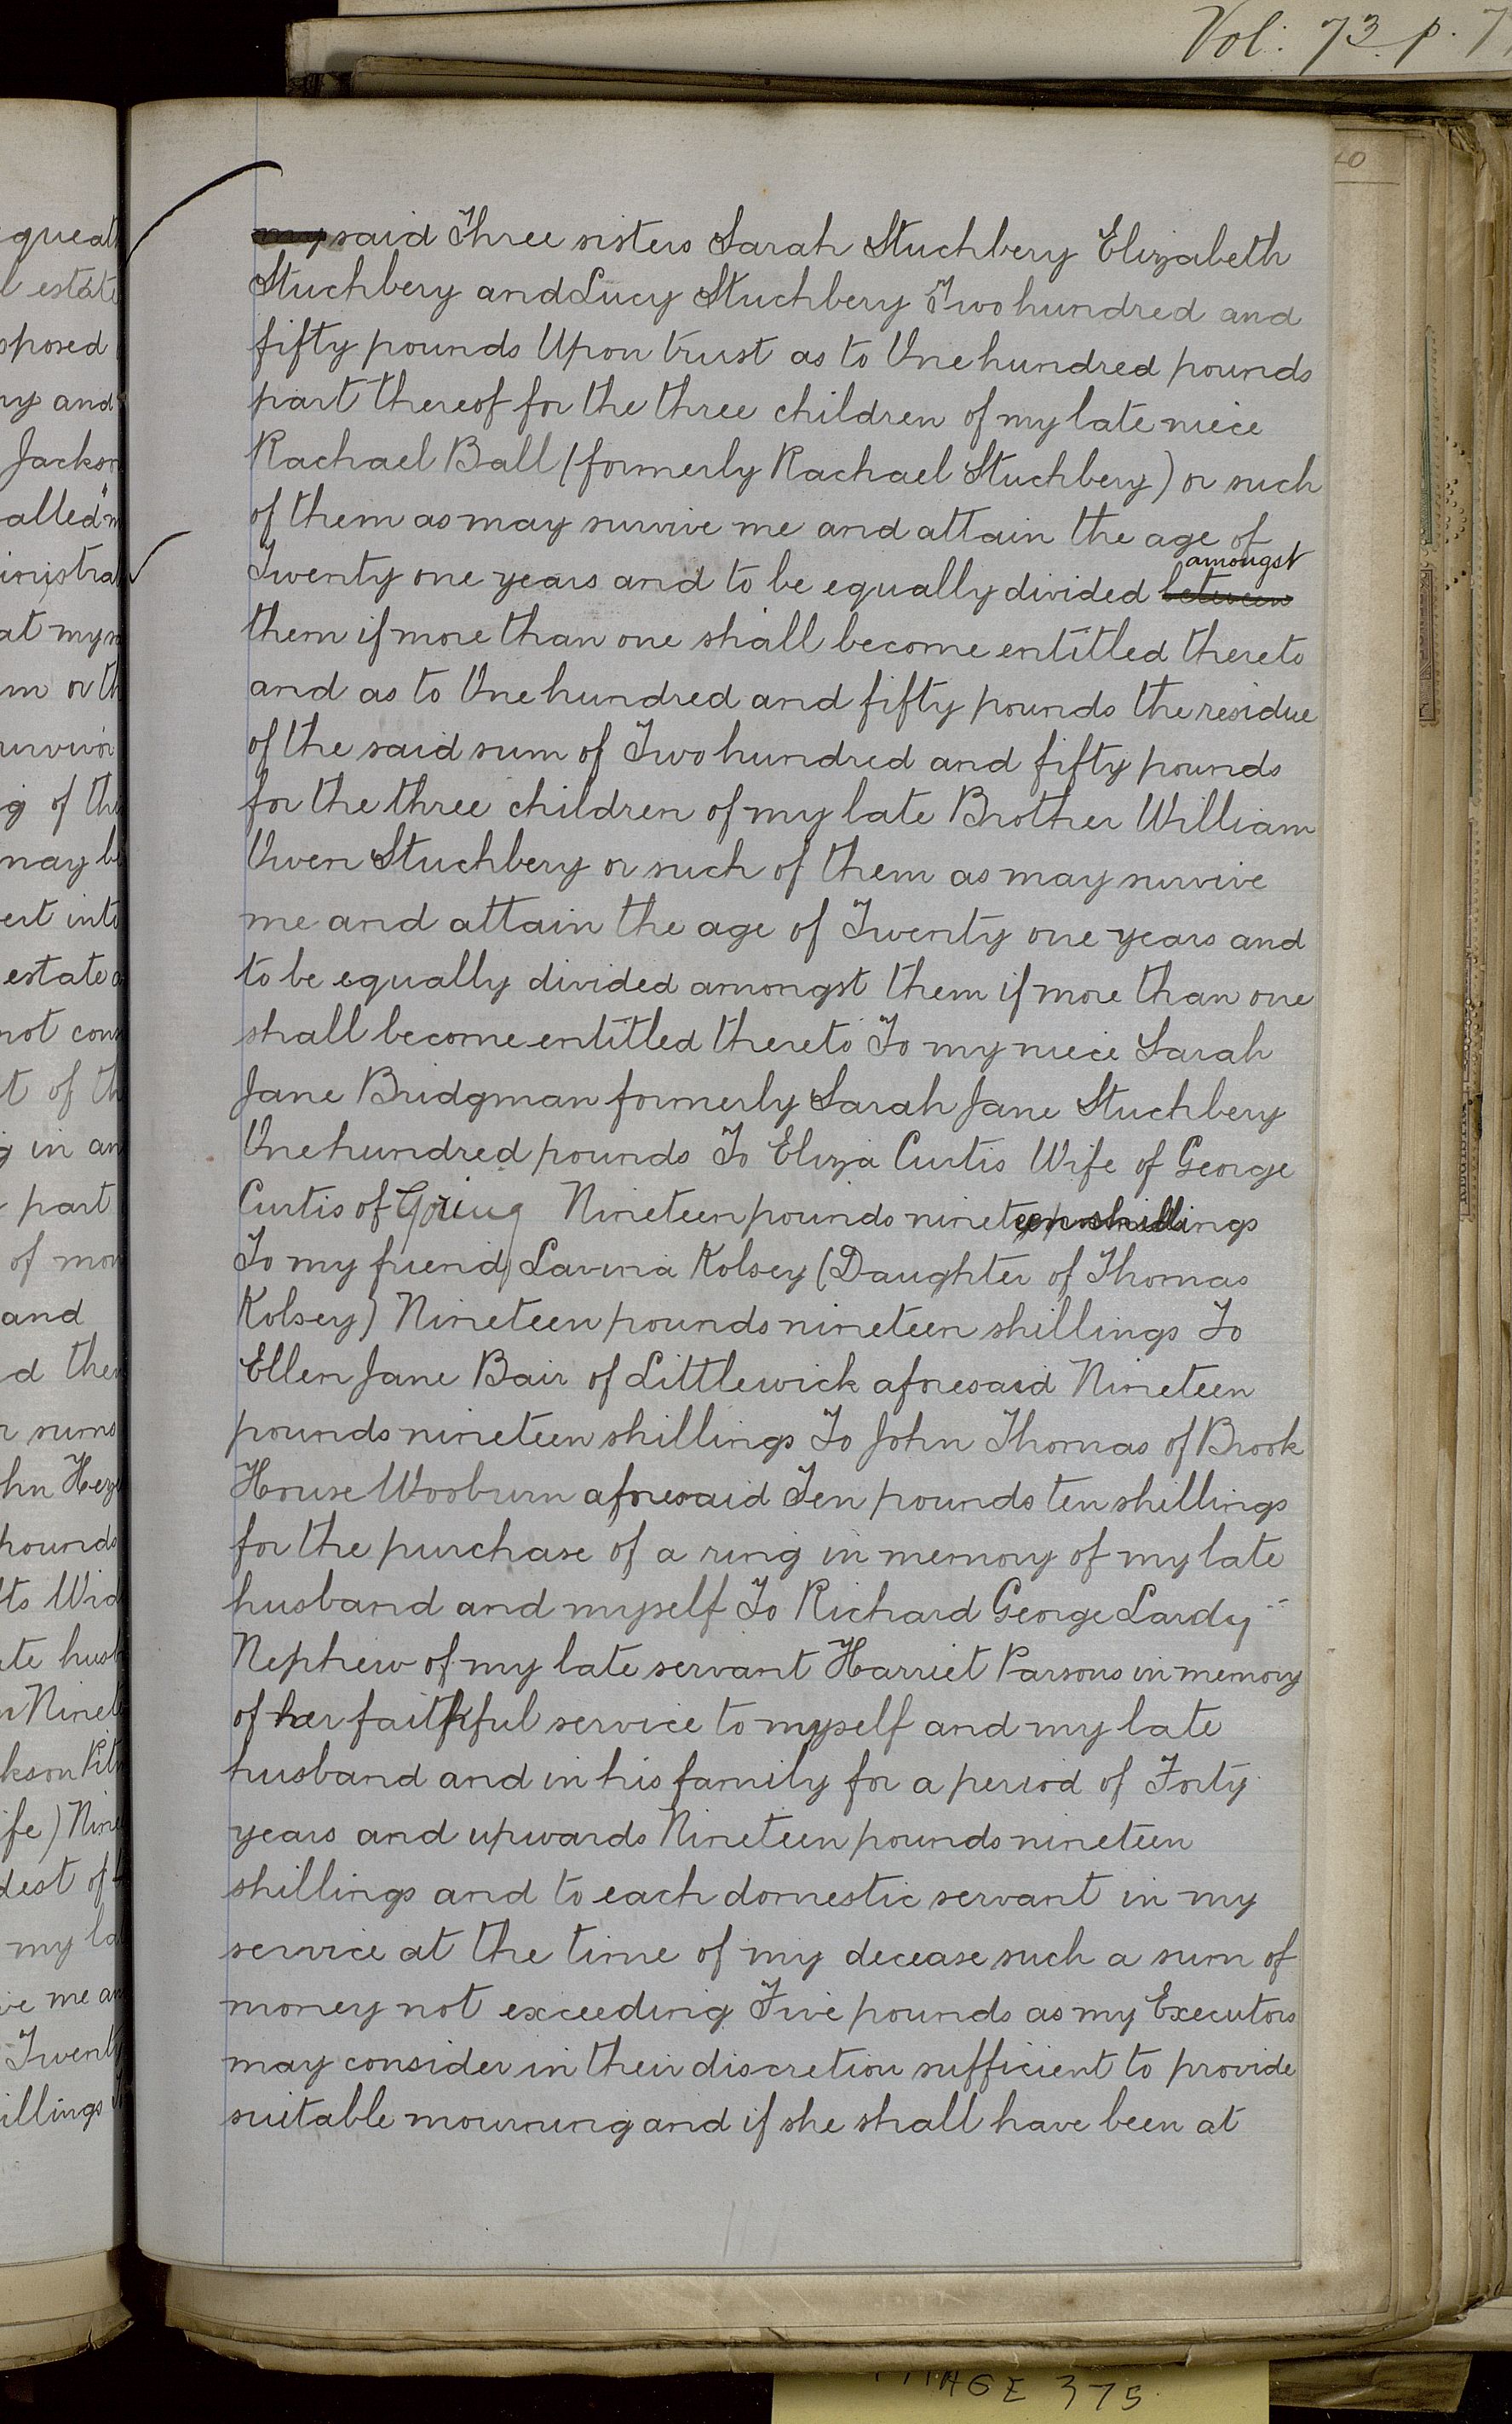 Vol: 73 p. 7
my said Three sisters Sarah Stuchbery Elizabeth
Stuchbery and Lucy Stuchbery Two hundred and
fifty pounds Upon trust as to One hundred pounds
part thereof for the three children of my late niece
Rachael Ball (formerly Rachael Stuchbery) or such
of them as may survive me and attain the age of
amongst
Twenty one years and to be equally divided between
them if more than one shall become entitled thereto
and as to One hundred and fifty pounds the residue
of the said sum of Two hundred and fifty pounds
for the three children of my late Brother William
Owen Stuchbery or such of them as may survive
me and attain the age of Twenty one years and
to be equally divided amongst them if more than one
shall become entitled thereto To my niece Sarah
Jane Bridgman formerly Sarah Jane Stuchbery
One hundred pounds To Eliza Curtis Wife of George
Curtis of Goring Nineteen pounds nineteen shillings
To my friend Lavina Kolsey (Daughter of Thomas
Kolsey) Nineteen pounds nineteen shillings To
Ellen Jane Bair of Littlewick aforesaid Nineteen
pounds nineteen shillings To John Thomas of Brook
House Wooburn aforesaid Ten pounds ten shillings
for the purchase of a ring in memory of my late
husband and myself To Richard George Lardy
Nephew of my late servant Harriet Parsons in memory
of her faithful service to myself and my late
husband and in his family for a period of Forty
years and upwards Nineteen pounds nineteen
shillings and to each domestic servant in my
service at the time of my decease such a sum of
money not exceeding Five pounds as my Executors
may consider in their discretion sufficient to provide
suitable mourning and if she shall have been at
375